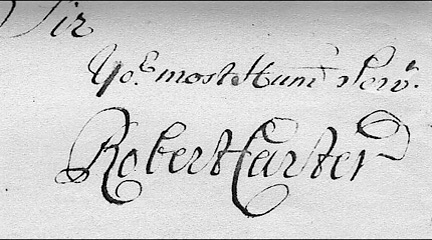 Sir
Yo.r most Hum Serv.t
Robert Carter